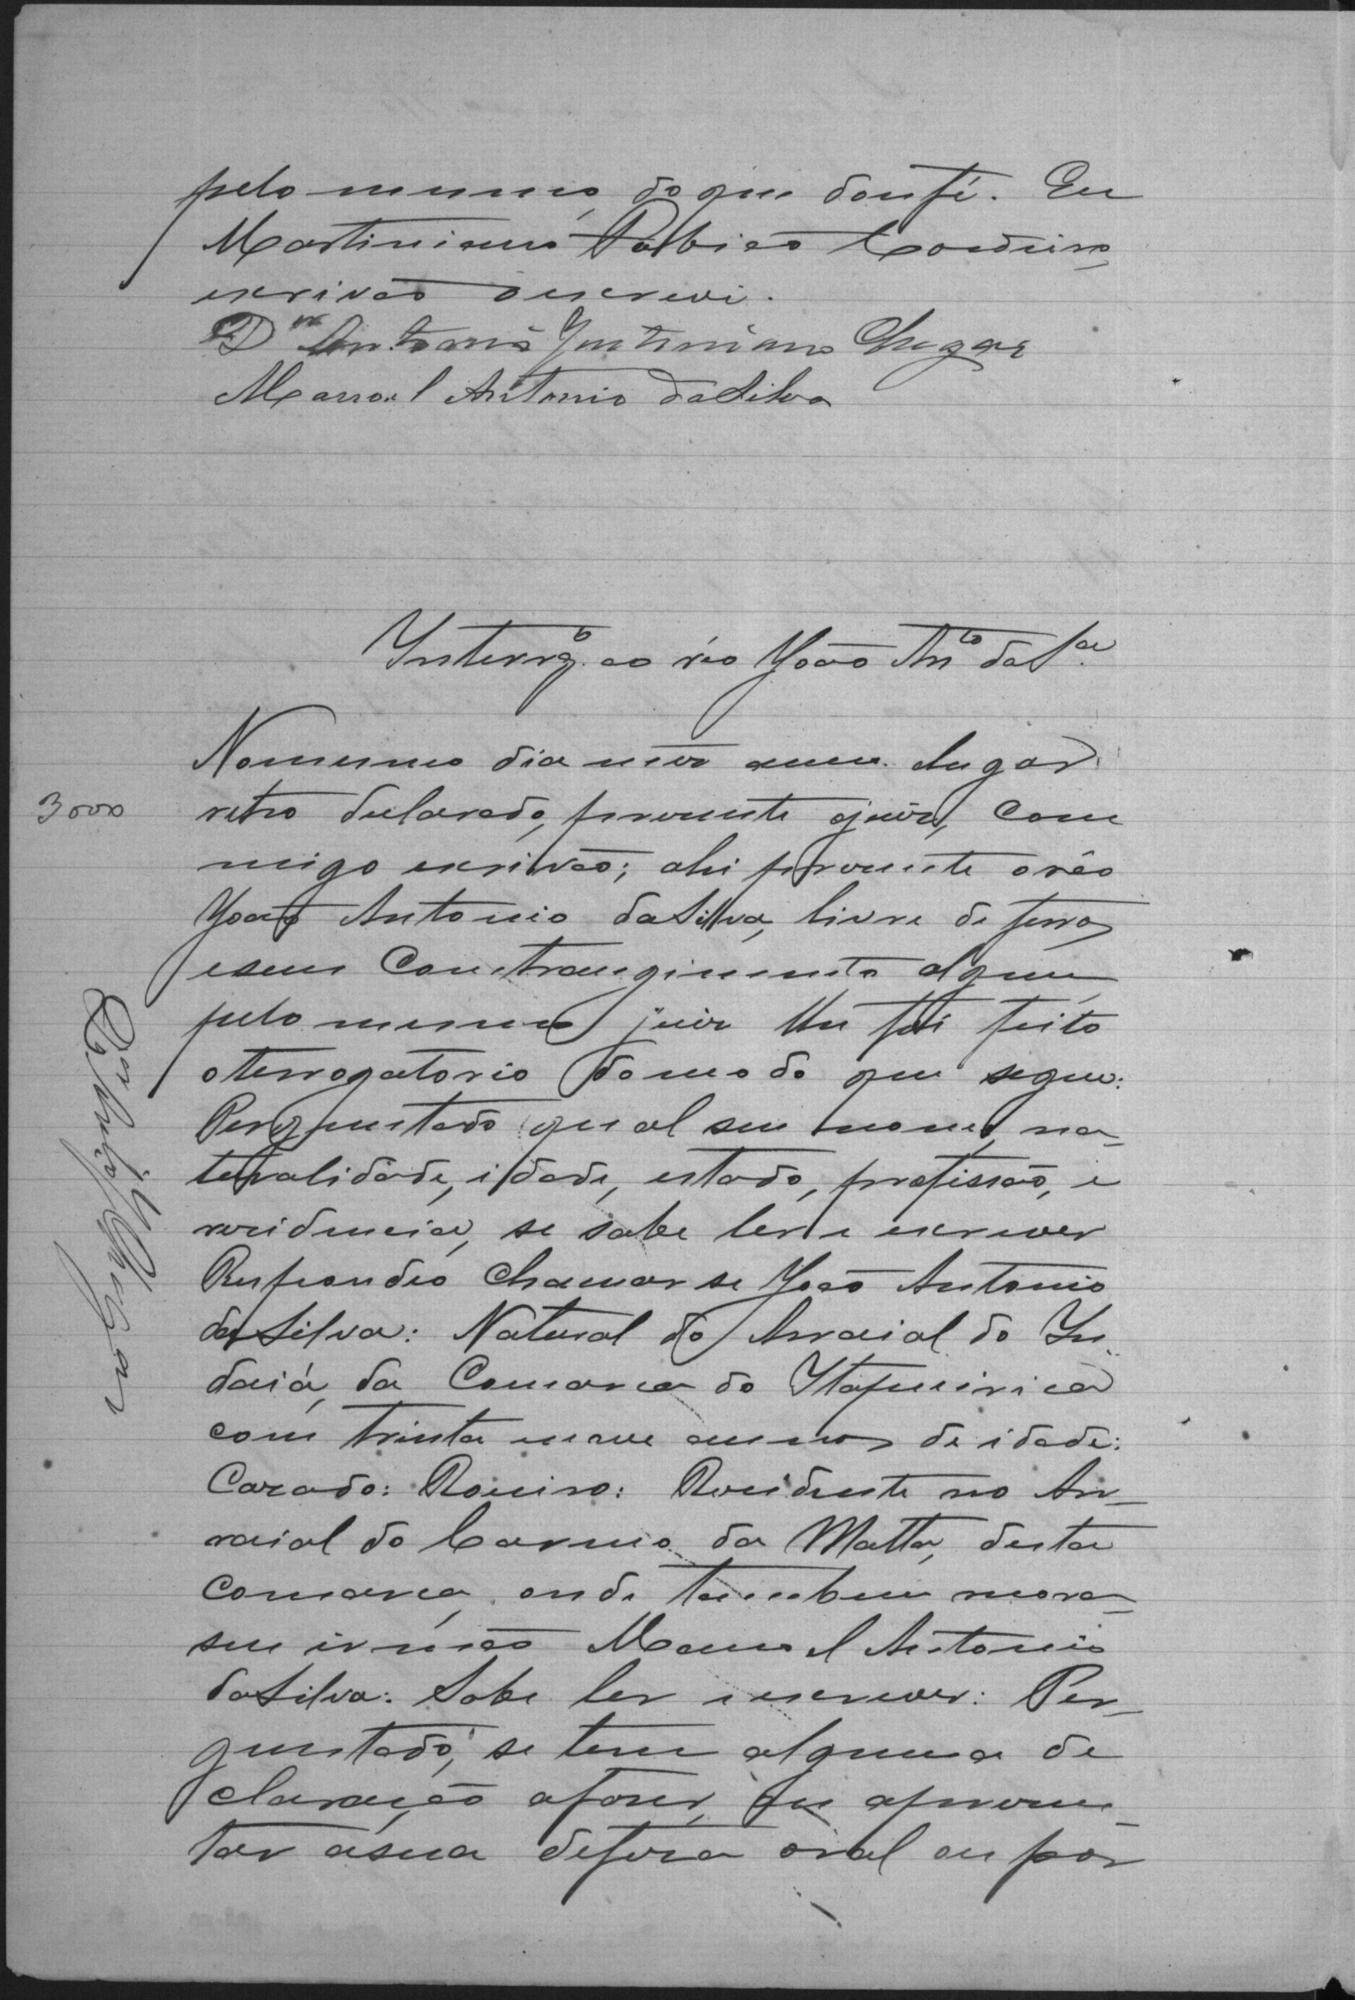 pelo mesmo, do que dou fé. Eu
Martiniano Cordeiro,
escrivão o escrevi.
Dr Antonio Justiniano Chagas
Manoel Antonio da Silva
Interrg.º ao réo João Anto da Sa
No mesmo dia mez anno lugar
retro declarado, presente o juiz, com
migo escrivão; ahi presente o réo
João Antonio da Silva, livre de ferros
e sem constrangimento algum
pelo mesmo juiz lhe foi feito
o terrogatorio do modo que segue:
Perguntado qual seu nome, na
teralidade, idade, estado, profissão, e
rezidencia, se sabe ler e escrever
Respondeo chamar se João Antonio
da Silva: Natural do Arraial do In
daiá, da Comarca do Itapicirica
com trinta e nove annos de idade:
Cazado: Roceiro: Rezidente no Ar
raial do Carmo da Matta, desta
comarca, onde tambem mora
seu irmão Manoel Antonio
da Silva: Sabe ler e escrever: Per
guntado, se tem alguma de
claração afazer, ou aprezen
tar a sua defeza oral ou por
3000